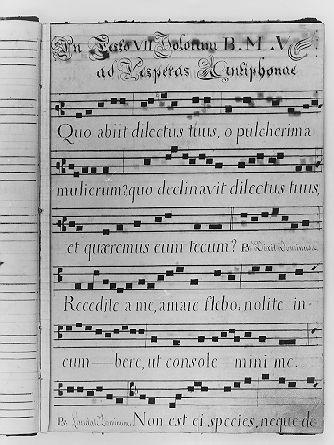 In Festo VII Dolorum B. M. V.
ad Vesperas Antiphonae
Quo abiit dilectus tuus, o pulcherima
mulierum? quo declinavit dilectus tuus,
et quæremus eum tecum? Ps. Dixit Dominus
Recedite a me, amare flebo: nolite in-
cum bere, ut console mini me.
Ps. Laudate Dominum. Non est ei species, neque de